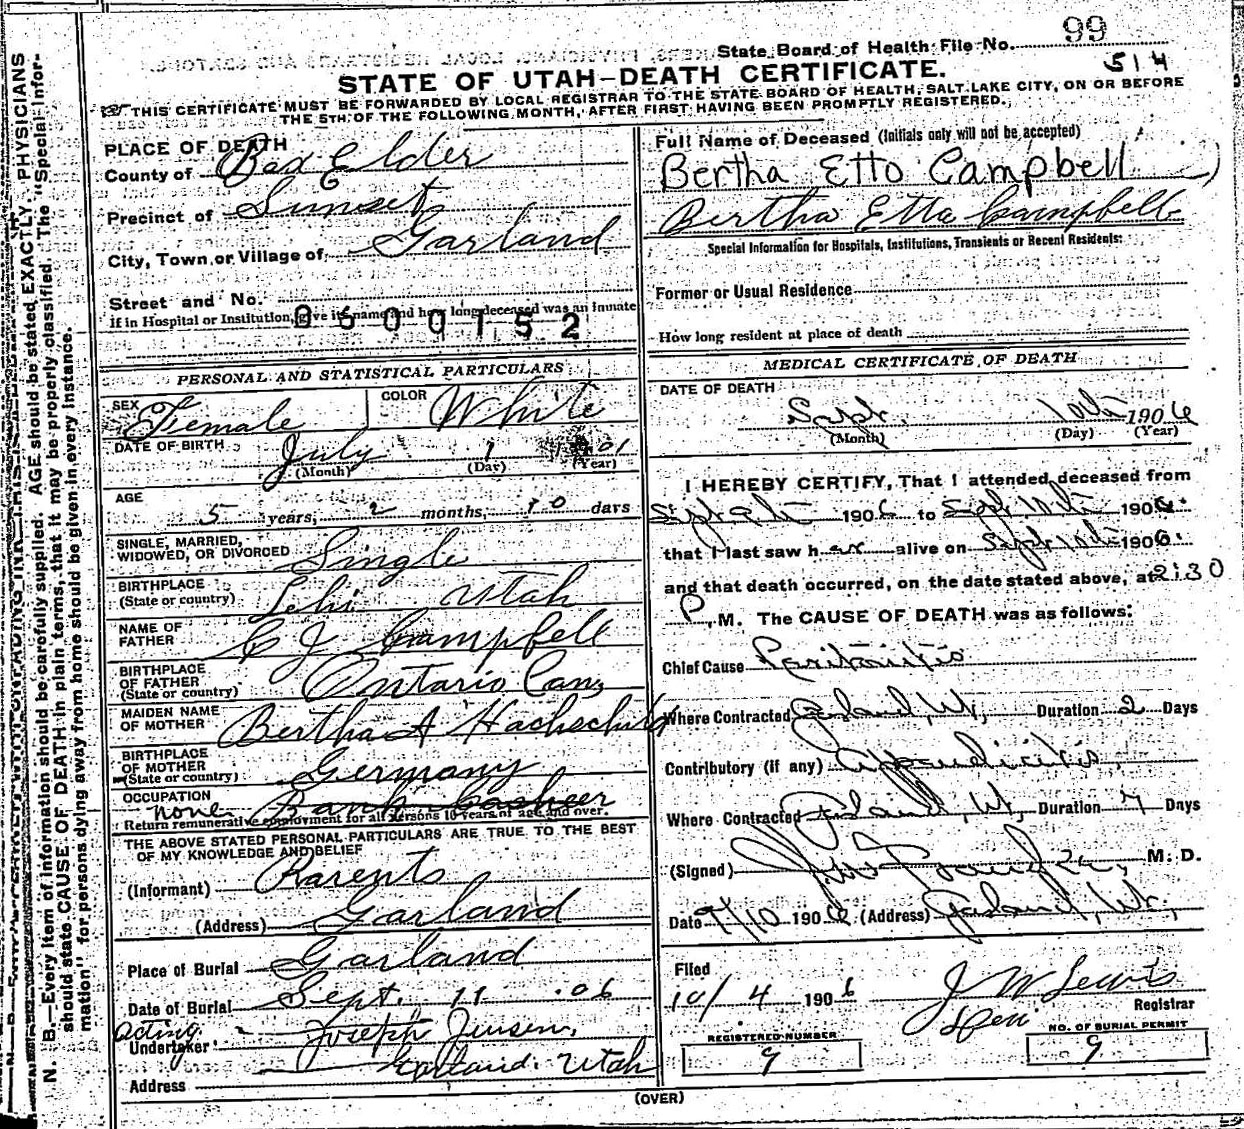 State Board of Health File No. 99
514
STATE OF UTAH—DEATH CERTIFICATE.
THIS CERTIFICATE MUST BE FORWARDED BY LOCAL REGISTRAR TO THE STATE BOARD OF HEALTH, SALT LAKE CITY, ON OR BEFORE
THE 5TH OF THE FOLLOWING MONTH, AFTER FIRST HAVING BEEN PROMPTLY REGISTERED.
PLACE OF DEATH
County of Box Elder
Precinct of Sunset
City, Town or Village of Garland
Street and No.
If in Hospital or Institution, give its name and how long deceased was an inmate
0600152
PERSONAL AND STATISTICAL PARTICULARS
SEX Female COLOR White
DATE OF BIRTH July 1 01
(Month) (Day) (Year)
AGE
5 years, 2 months, 10 days
SINGLE, MARRIED,
WIDOWED, OR DIVORCED Single
BIRTHPLACE
(State or country) Lehi Utah
NAME OF
FATHER C J Campbell
BIRTHPLACE
OF FATHER
(State or country) Ontario Can,
MAIDEN NAME
OF MOTHER Bertha A Hachschild
BIRTHPLACE
OF MOTHER
(State or country) Germany
OCCUPATION
none Bank Casheer
Return remunerative employment for all persons 10 years of age and over.
THE ABOVE STATED PERSONAL PARTICULARS ARE TRUE TO THE BEST
OF MY KNOWLEDGE AND BELIEF
(Informant) Parents
(Address) Garland
Place of Burial Garland
Date of Burial Sept. 11 06
acting
Undertaker Joseph Jensen,
Garland. Utah
Address
Full Name of Deceased (Initials only will not be accepted)
Bertha Etto Campbell
Bertha Etta Campbell
Special Information for Hospitals, Institutions, Transients or Recent Residents:
Former or Usual Residence
How long resident at place of death
MEDICAL CERTIFICATE OF DEATH
DATE OF DEATH
Sept. 10th 1906
(Month) (Day) (Year)
I HEREBY CERTIFY, That I attended deceased from
Sept 9th 1906 to Sept 10th 1906
that I last saw her alive on Sept 10th 1906
and that death occurred, on the date stated above, at 2:30
P. M. The CAUSE OF DEATH was as follows:
Chief Cause Peritonitis
Where Contracted Garland, Ut, Duration 2 Days
Contributory (if any) Appendicitis,
Where Contracted Garland, Ut, Duration 7 Days
(Signed) M. D.
Date 9/10 1906 (Address) Garland, Ut,
Filed
10/4 1906 J W Lewis
Registrar
REGISTERED NUMBER
9
NO. OF BURIAL PERMIT
9
(OVER)
N. B.—Every item of information should be carefully supplied. AGE should be stated EXACTLY. PHYSICIANS
should state CAUSE OF DEATH in plain terms, that it may be properly classified. The "Special Infor-
mation" for persons dying away from home should be given in every instance.